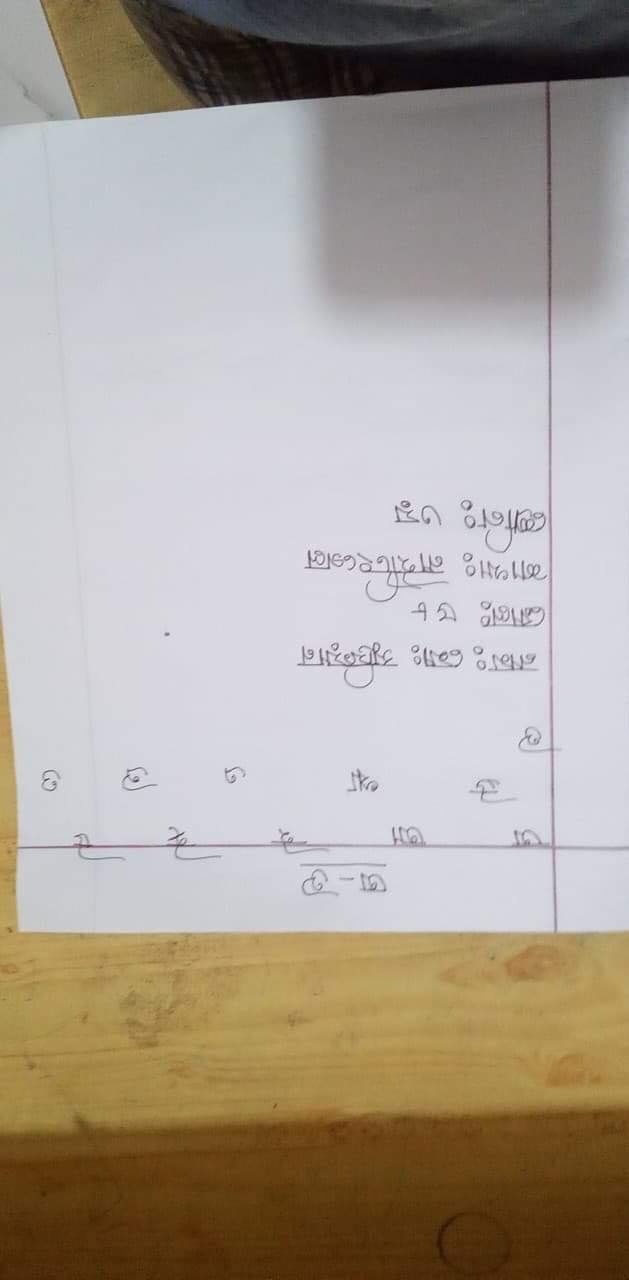 অ-ঔ
অ আ ই ঈ উ
ঊ ঋ এ ঐ ও
ঔ
নামঃ মোঃ সুফিয়ান
রোলঃ ৬৮
শাখাঃ নাইটিংগেল
শ্রেনিঃ ৩য়